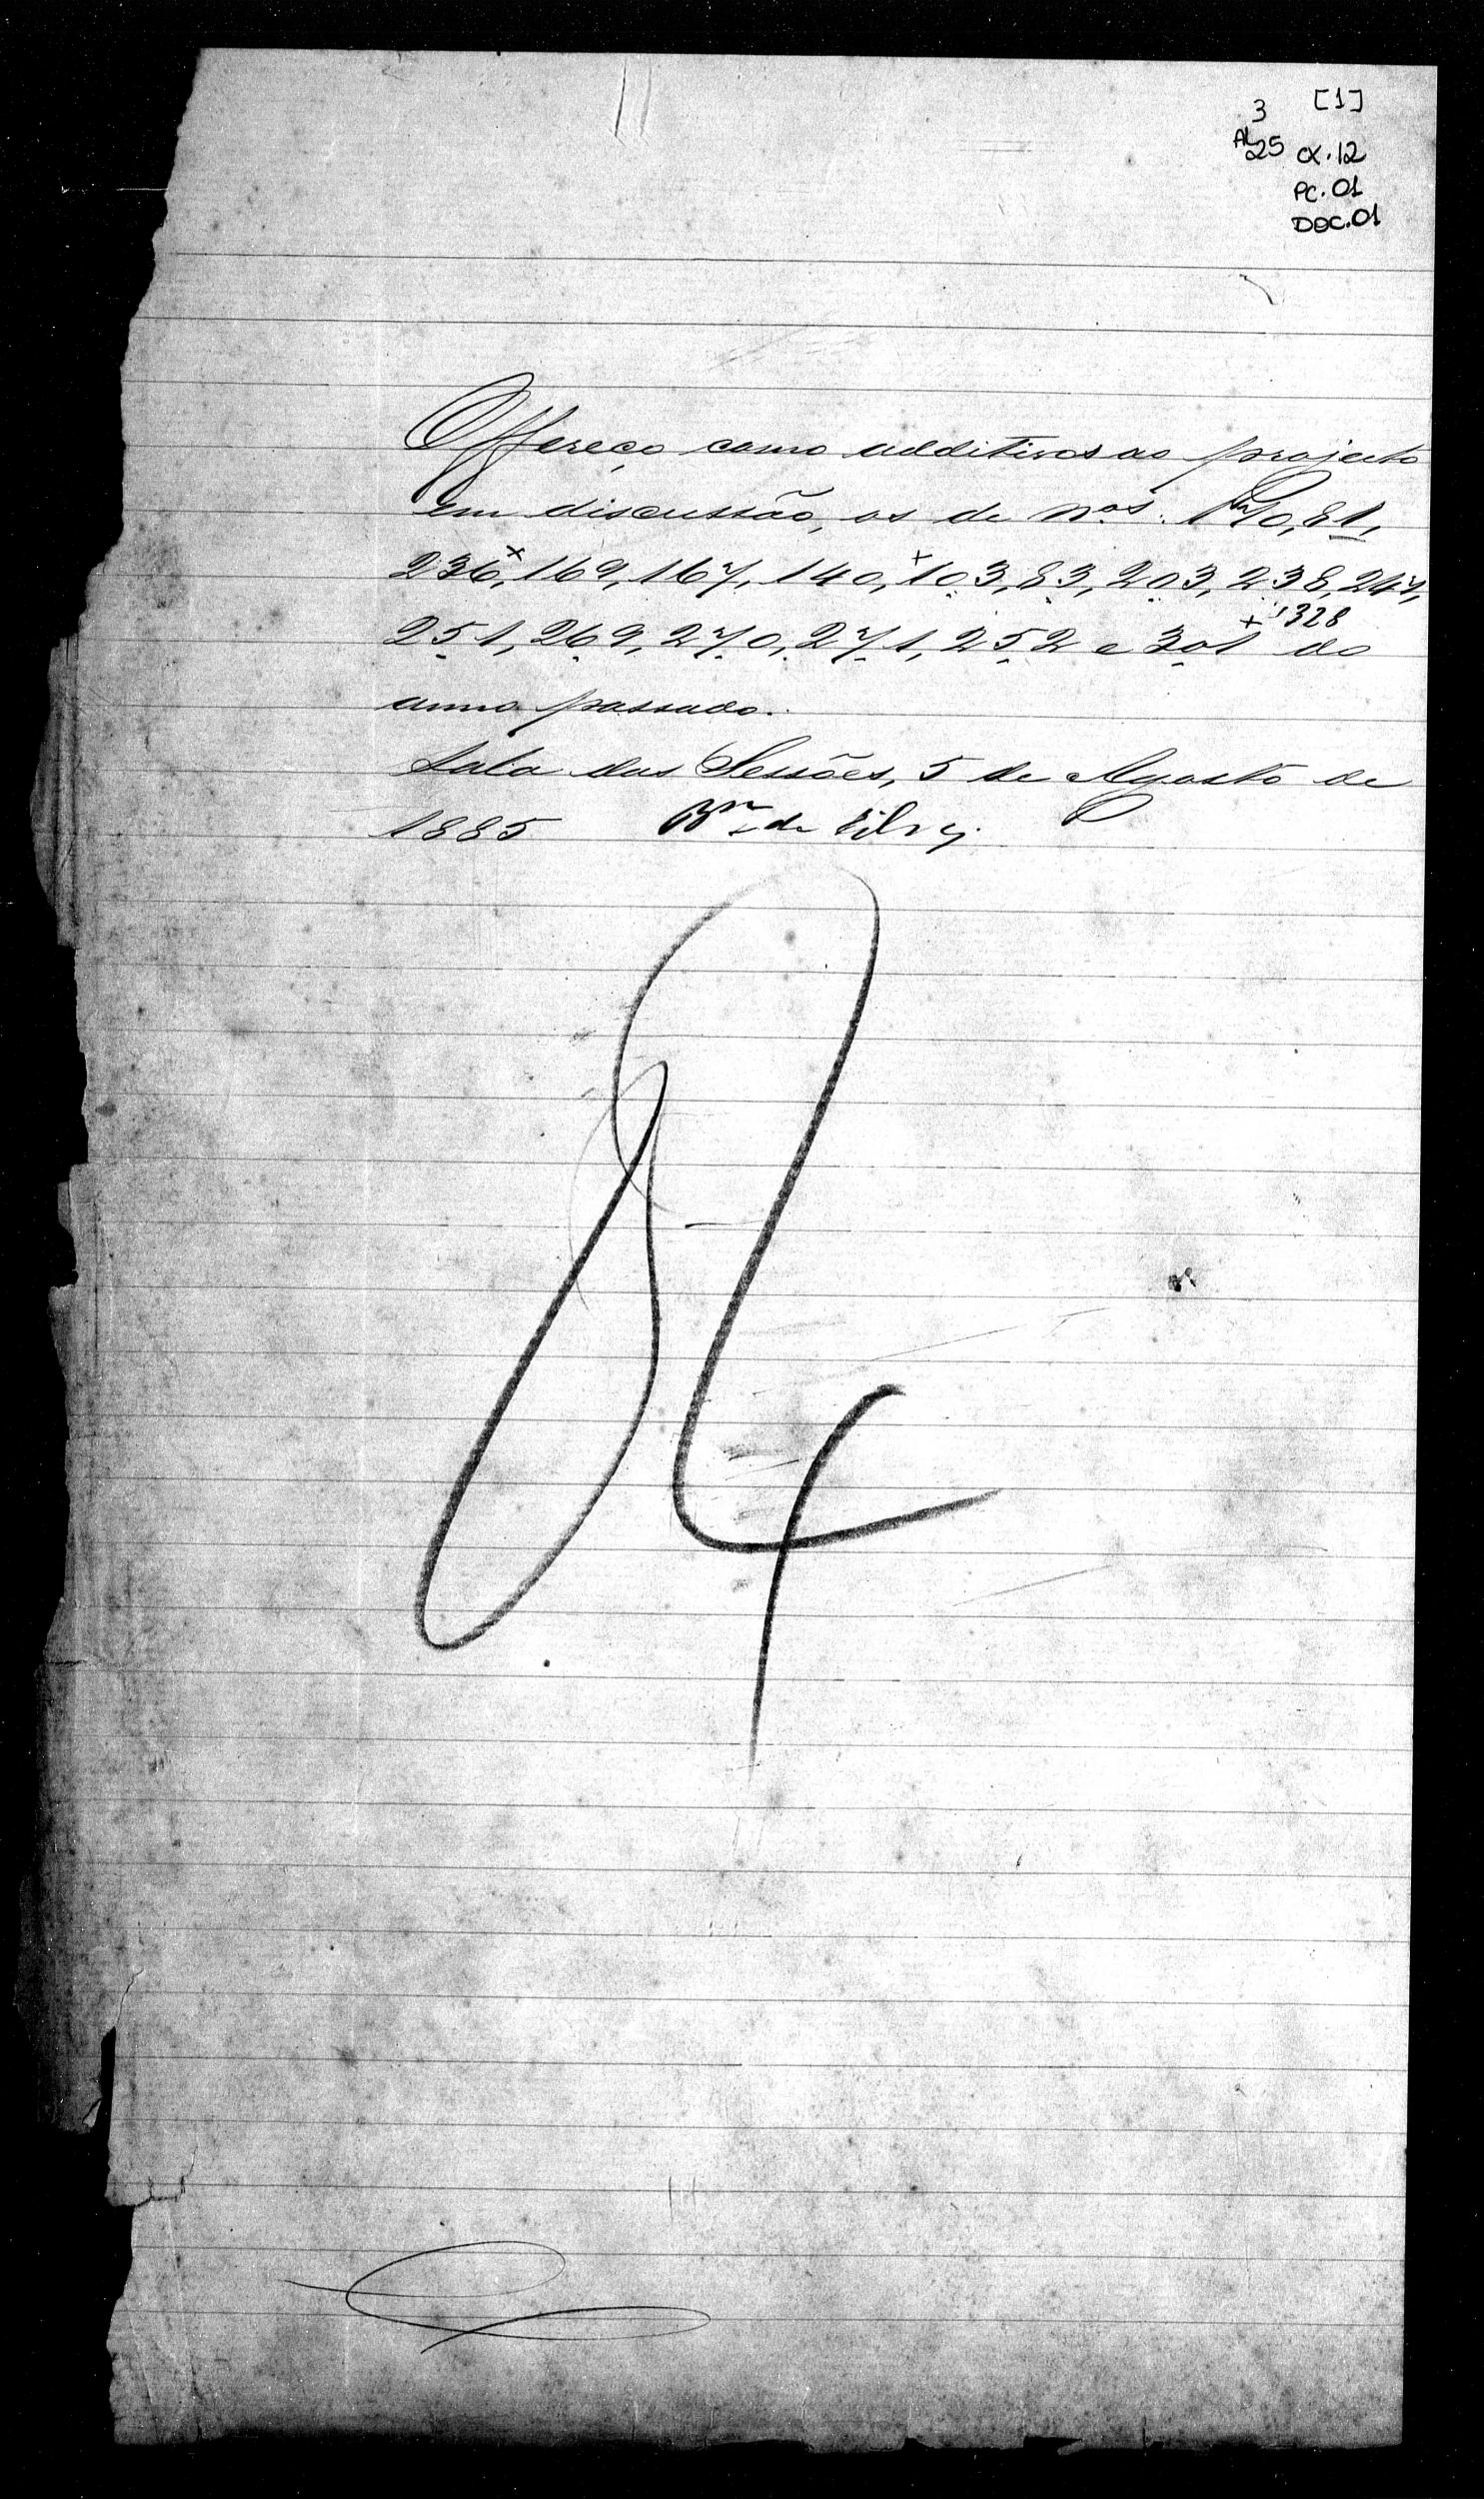 [1]
3
AL
25 CX.12
PC.01
DOC.01
Offereço como additivos ao projecto
em discussão, os de nos. 170, 81,
236, 169, 167, 140, 103, 83, 203, 238, 247,
328
251, 269, 270, 271, 252 e 301 do
anno passado.
Sala das Sessões, 5 de Agosto de
1885 da Silva